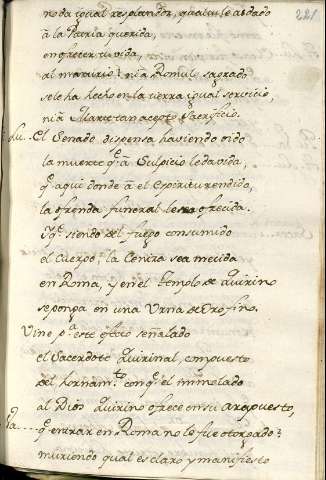 221
no da igual resplandor, qual tu le as dado
à la Patria querida,
en ofrecer tu vida,
al martirio! ni à Romulo sagrado
se le ha hecho en la tierra igual servicio,
ni à Marte tan acepto Sacrificio.
Lu. El Senado dispensa haviendo oido
la muerte qe. à Sulpicio le da vida,
qe. aqui donde à el Espiritu rendido,
la ofrenda funeral le sea ofrecida.
Y qe. siendo del fuego consumido
el Cuerpo; la Ceniza sea metida
en Roma, y en el templo de Quirino
se ponga en una Urna de Oro fino.
Vino pa. este efecto señalado
el Sacerdote Quirinal compuesto
del hornamto. con qe. el inmolado
al Dios Quirino ofrece en su Ara puesto,
qe. entrar en Roma no le fue otorgado:
muriendo qual es claro y manifiesto